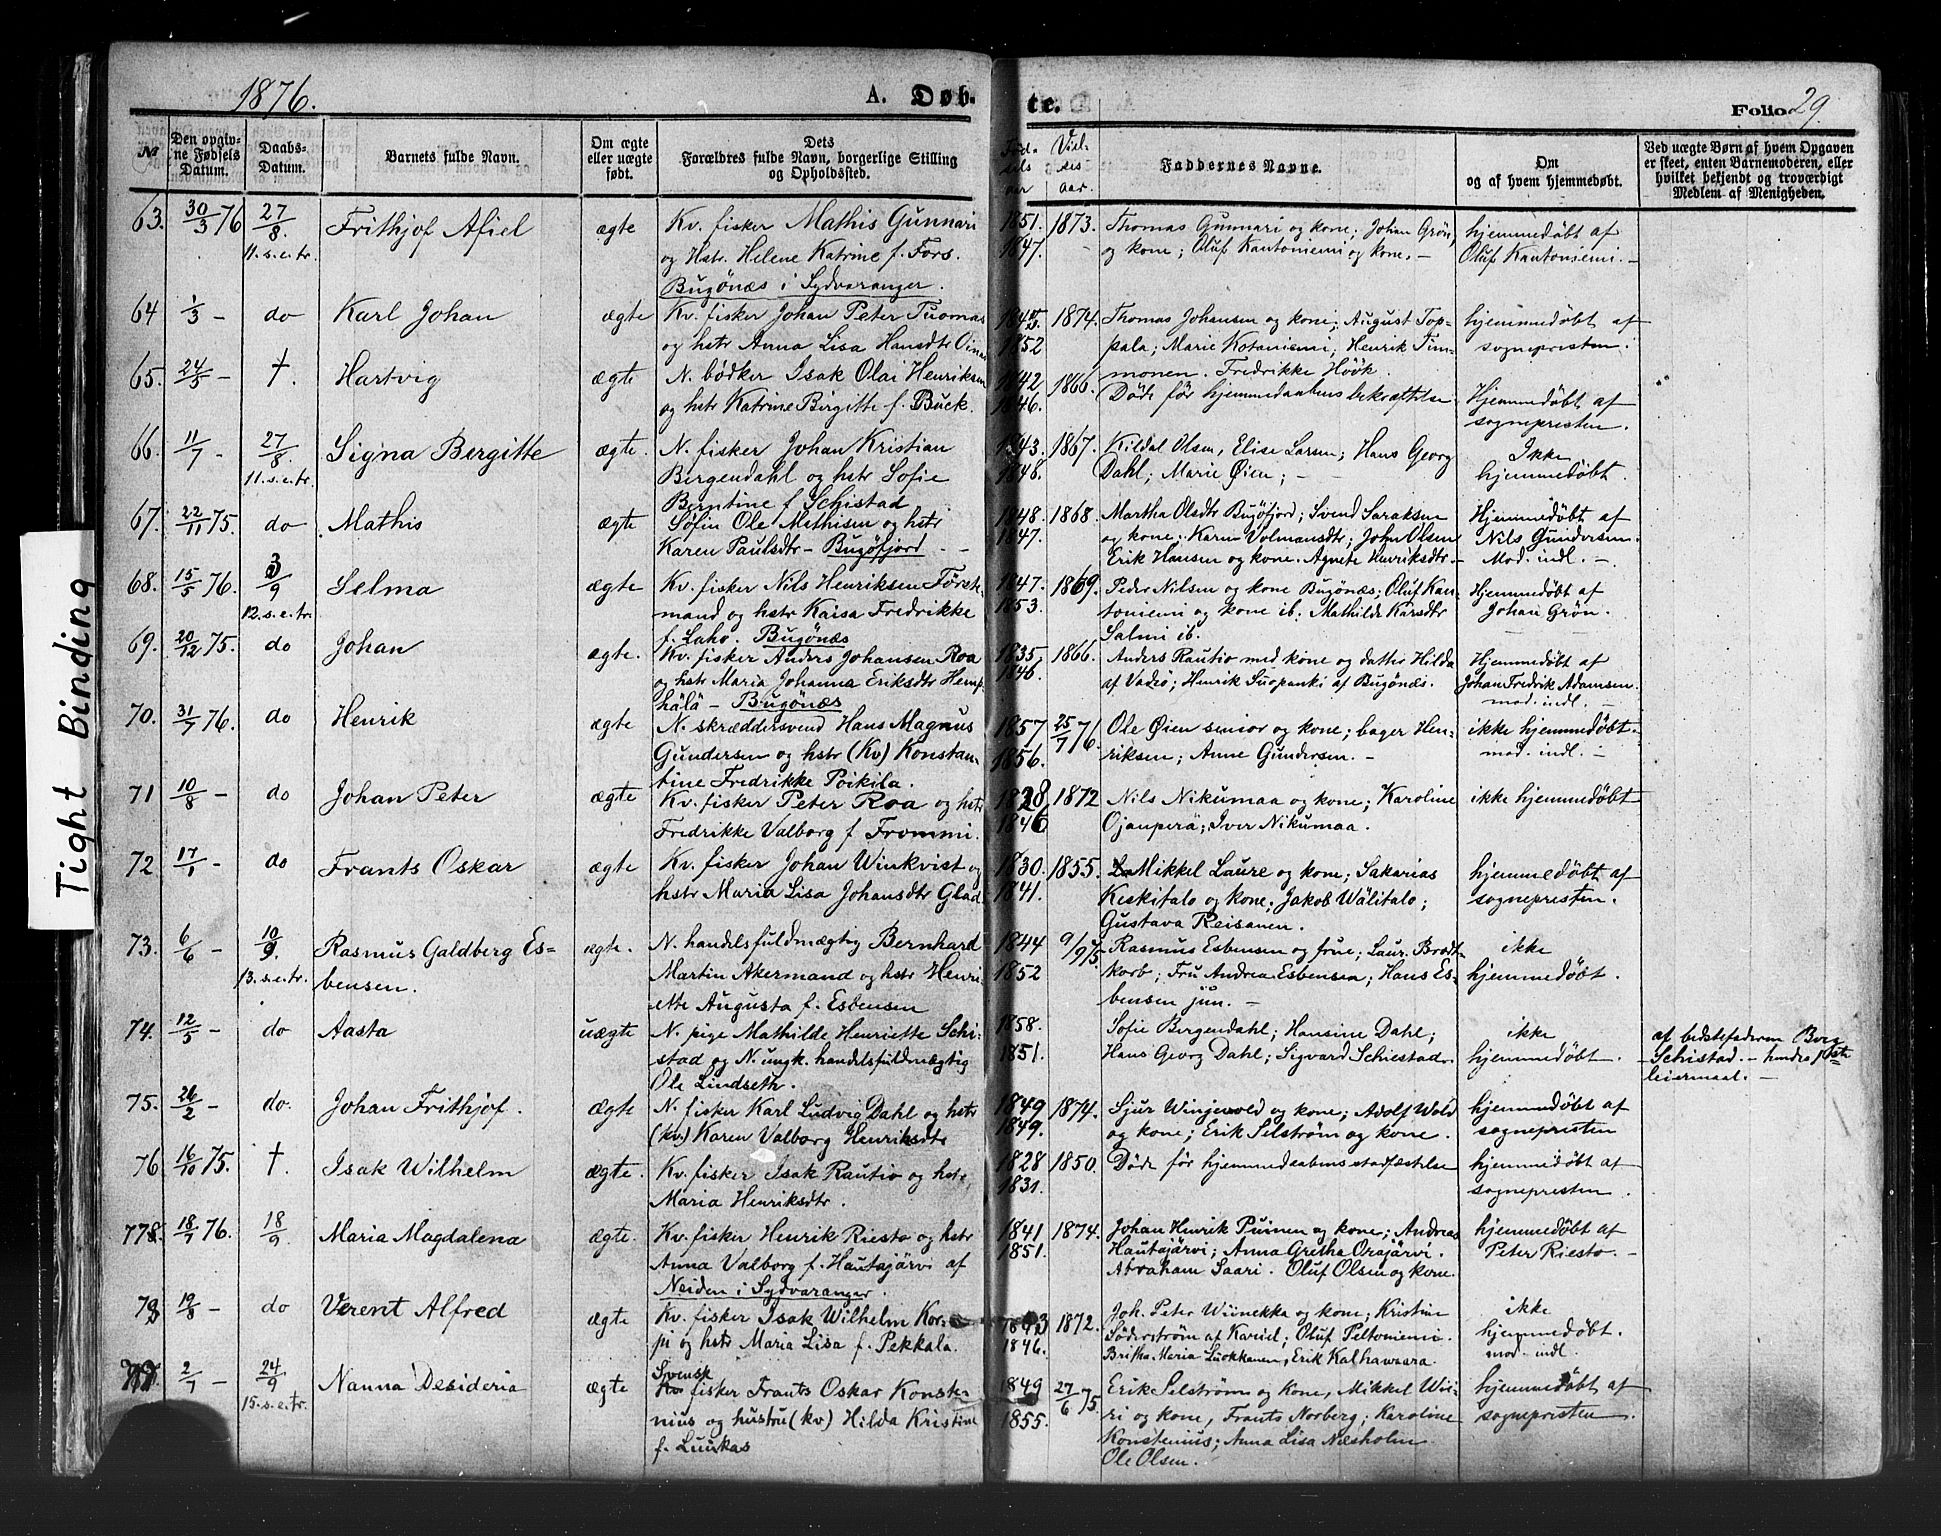 1876.
A. Døb-
te.
Folio 29.
№
Den opgiv-
ne Fødsels
Datum.
Daabs-
Datum.
Barnets fulde Navn.
Om ægte
eller uægte
født.
Dets
Forældres fulde Navn, borgerlige Stilling
og Opholdssted.
Viel-
ses
aar.
Faddernes Navne.
Om
og af hvem hjemmedøbt.
Ved uægte Børn af hvem Opgaven
er skeet, enten Barnemoderen, eller
hvilket bekjendt og troværdigt
Medlem af Menigheden.
Tight Binding
63. 30/3 76 27/8 Frithjof Afiel ægte Kv. fisker Mathis Gunnari 1851. 1873. Thomas Gunnari og kone; Johan Grön, hjemmedøbt af
11. s. e. tr. og Hstr. Helene Katrine f. Fors. 1847. og kone; Oluf Kantoniemi og kone. — Oluf Kantoniemi. —
Bugönæs i Sydvaranger.
64 1/3 — do Karl Johan ægte Kv. fisker Johan Peter Tuomas 1874. Thomas Johansen og kone; August Top- hjemmedøbt af
og hstr Anna Lisa Hansdtr Oinas 1852 pala; Marie Kotaniemi; Henrik Tim- sognepresten.
65. 24/5 — †. Hartvig ægte N. bödker Isak Olai Henriksen 1842 1866. monen. Fredrikke Höök. Hjemmedøbt af
og hstr Katrine Birgitte f. Buck. 1846. Döde för hjemmedaabens bekræftelse sognepresten.
66. 11/7 — 27/8. Signa Bergitte ægte. N. fisker Johan Kristian 1843. 1867. Kildal Olsen, Elise Larsen; Hans Georg Ikke
11. s. e. tr. Bergendahl og hstr Sofie 1848. Dahl; Marie Øien; — hjemmedøbt.
Berntine f Schistad
67. 22/11 75. do Mathis ægte Søfin Ole Mathisen og hstr 1848. 1868. Martha Olsdtr Bugöfjord; Svend Saraksen Hjemmedøbt af
Karen Paulsdtr — Bugöfjord. — 1847. og kone; Karen Volmansdtr; John Olsen Nils Gundersen.
Erik Hansen og kone. Agnete Henriksdtr — Mod. indl. —
68. 15/5 76. 3/9 Selma ægte Kv. fisker Nils Henriksen Förste- 1847. 1869. Peder Nilsen og kone Bugönæs; Oluf Kan- Hjemmedøbt af
12. s. e. tr. mand og hstr Kaisa Fredrikke 1853. toniemi og kone ib. Mathilde Karsdtr Johan Grön.
f. Laho. Bugönæs Salmi ib.
69. 20/12 75. do Johan ægte. Kv. fisker Anders Johansen Roa 1835. 1866. Anders Rautio med kone og datter Hilda Hjemmedøbt af
og hstr Maria Johanna Eriksdtr Hemp- 1846. af Vadsö; Henrik Suopanki af Bugönæs. Johan Fredrik Adamsen.
hälä — Bugönæs mod. indl. —
70. 31/7 76. do Henrik ægte N. skræddersvend Hans Magnus 1857 25/7 76. Ole Øien senior og kone; bager Hen- ikke hjemmedøbt.
Gundersen og hstr (Kv) Konstan- 1856. riksen; Anne Gundersen. — mod. indl. —
tine Fredrikke Poikila.
71 10/8 — do Johan Peter ægte Kv. fisker Peter Roa og hstr 1828 1872 Nils Nikumaa og kone; Karoline ikke hjemmedøbt
Fredrikke Valborg f Frommi. 1846 Ojanperä; Iver Nikumaa.
72 17/1 — do Frants Oskar ægte Kv. fisker Johan Winkvist og 1830. 1855. Mikkel Laure og kone; Sakarias hjemmedøbt af
hstr Maria Lisa Johansdtr Glad 1841. Keskitalo og kone; Jakob Wälitalo; sognepresten.
Gustava Reisanen.
73. 6/6 — 10/9. Rasmus Galdberg Es- ægte. N. handelsfuldmægtig Bernhard 1844 9/9 75. Rasmus Esbensen og frue; Laur. Brodt- ikke
13. s. e. tr. bensen. Martin Akermand og hstr Henri- 1852 korb; Fru Andrea Esbensen; Hans Es- hjemmedøbt.
ette Augusta f. Esbensen bensen jun. —
74. 12/5 — do Aasta uægte N. pige Mathilde Henriette Schi- 1858. Sofie Bergendahl; Hansine Dahl; ikke af bedstefaderen Berg
stad og N. ungk. handelsfuldmægtig 1851. Hans Georg Dahl; Sigvard Schiestad. hjemmedøbt. Schistad. — hendes 1ste
Ole Lindseth. leiermaal. —
75. 26/2 — do. Johan Frithjof. ægte N. fisker Karl Ludvig Dahl og hstr 1849 1874. Sjur Wingevold og kone; Adolf Wold hjemmedøbt af
(kv) Karen Valborg Henriksdtr 1849. og kone; Erik Selström og kone. sognepresten
76 16/10 75. †. Isak Wilhelm ægte. Kv. fisker Isak Rautio og hstr, 1828 1850. Döde för hjemmedaabens stadfæstelse hjemmedøbt af
Maria Henriksdtr. 1831. sognepresten.
77 18/7 76. 18/9 Maria Magdalena ægte. Kv. fisker Henrik Riesto og hstr 1841 1874. Johan Henrik Puinen og kone; Andreas hjemmedøbt af
Anna Valborg f. Hautajärvi af 1851. Hautajärvi; Anna Gretha Orajärvi. Peter Riesto. —
Neiden i Sydvaranger. Abraham Saari. Oluf Olsen og kone.
78 19/8 — do Verent Alfred ægte Kv. fisker Isak Wilhelm Kor- 1843 1872. Joh. Peter Wiinekka og kone; Kristine ikke
pi og hstr Maria Lisa f. Pekkala. 1846. Söderström af Kariel; Oluf Peltoniemi. hjemmedøbt.
Britha Maria Luokkanen, Erik Kalhawaara. mod. indl.
2/7 — 24/9 Nanna Desideria ægte Svensk fisker Frants Oskar Konste- 1849 27/6 75. Erik Selström og Kone, Mikkel Wii- hjemmedøbt af
15. s. e. tr. nius og hustru (kv) Hilda Kristine 1855. ri og kone, Frants Norberg; Karoline sognepresten.
f. Luukas Konstenius; Anna Lisa Næsholm
Ole Olsen.